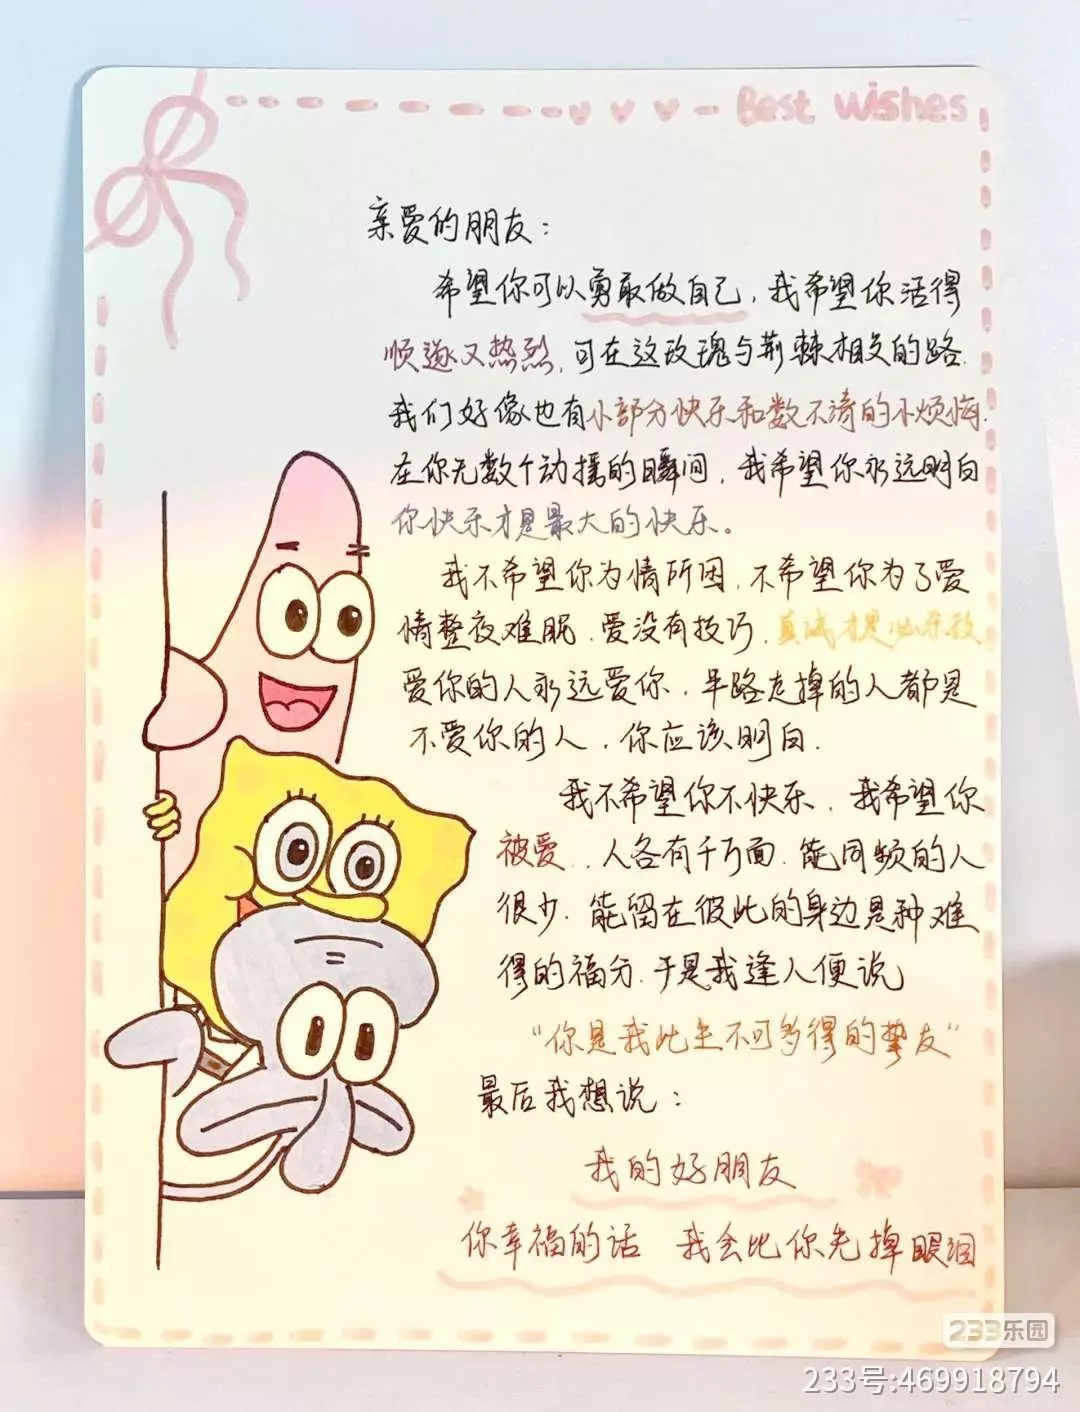 Best wishes
亲爱的朋友：
希望你可以勇敢做自己，我希望你活得
顺遂又热烈，可在这玫瑰与荆棘相交的路.
我们好像也有小部分快乐和数不清的小烦悔.
在你无数个动摇的瞬间，我希望你永远明白
你快乐才是最大的快乐。
我不希望你为情所困，不希望你为了爱
情整夜难眠.爱没有技巧.真诚才是必杀技
爱你的人永远爱你，半路走掉的人都是
不爱你的人，你应该明白.
我不希望你不快乐，我希望你
被爱..人各有千万面.能同频的人
很少.能留在彼此的身边是种难
得的福分.于是我逢人便说
“你是我此生不可多得的挚友”
最后我想说：
我的好朋友
你幸福的话 我会比你先掉眼泪
233乐园
233号:469918794